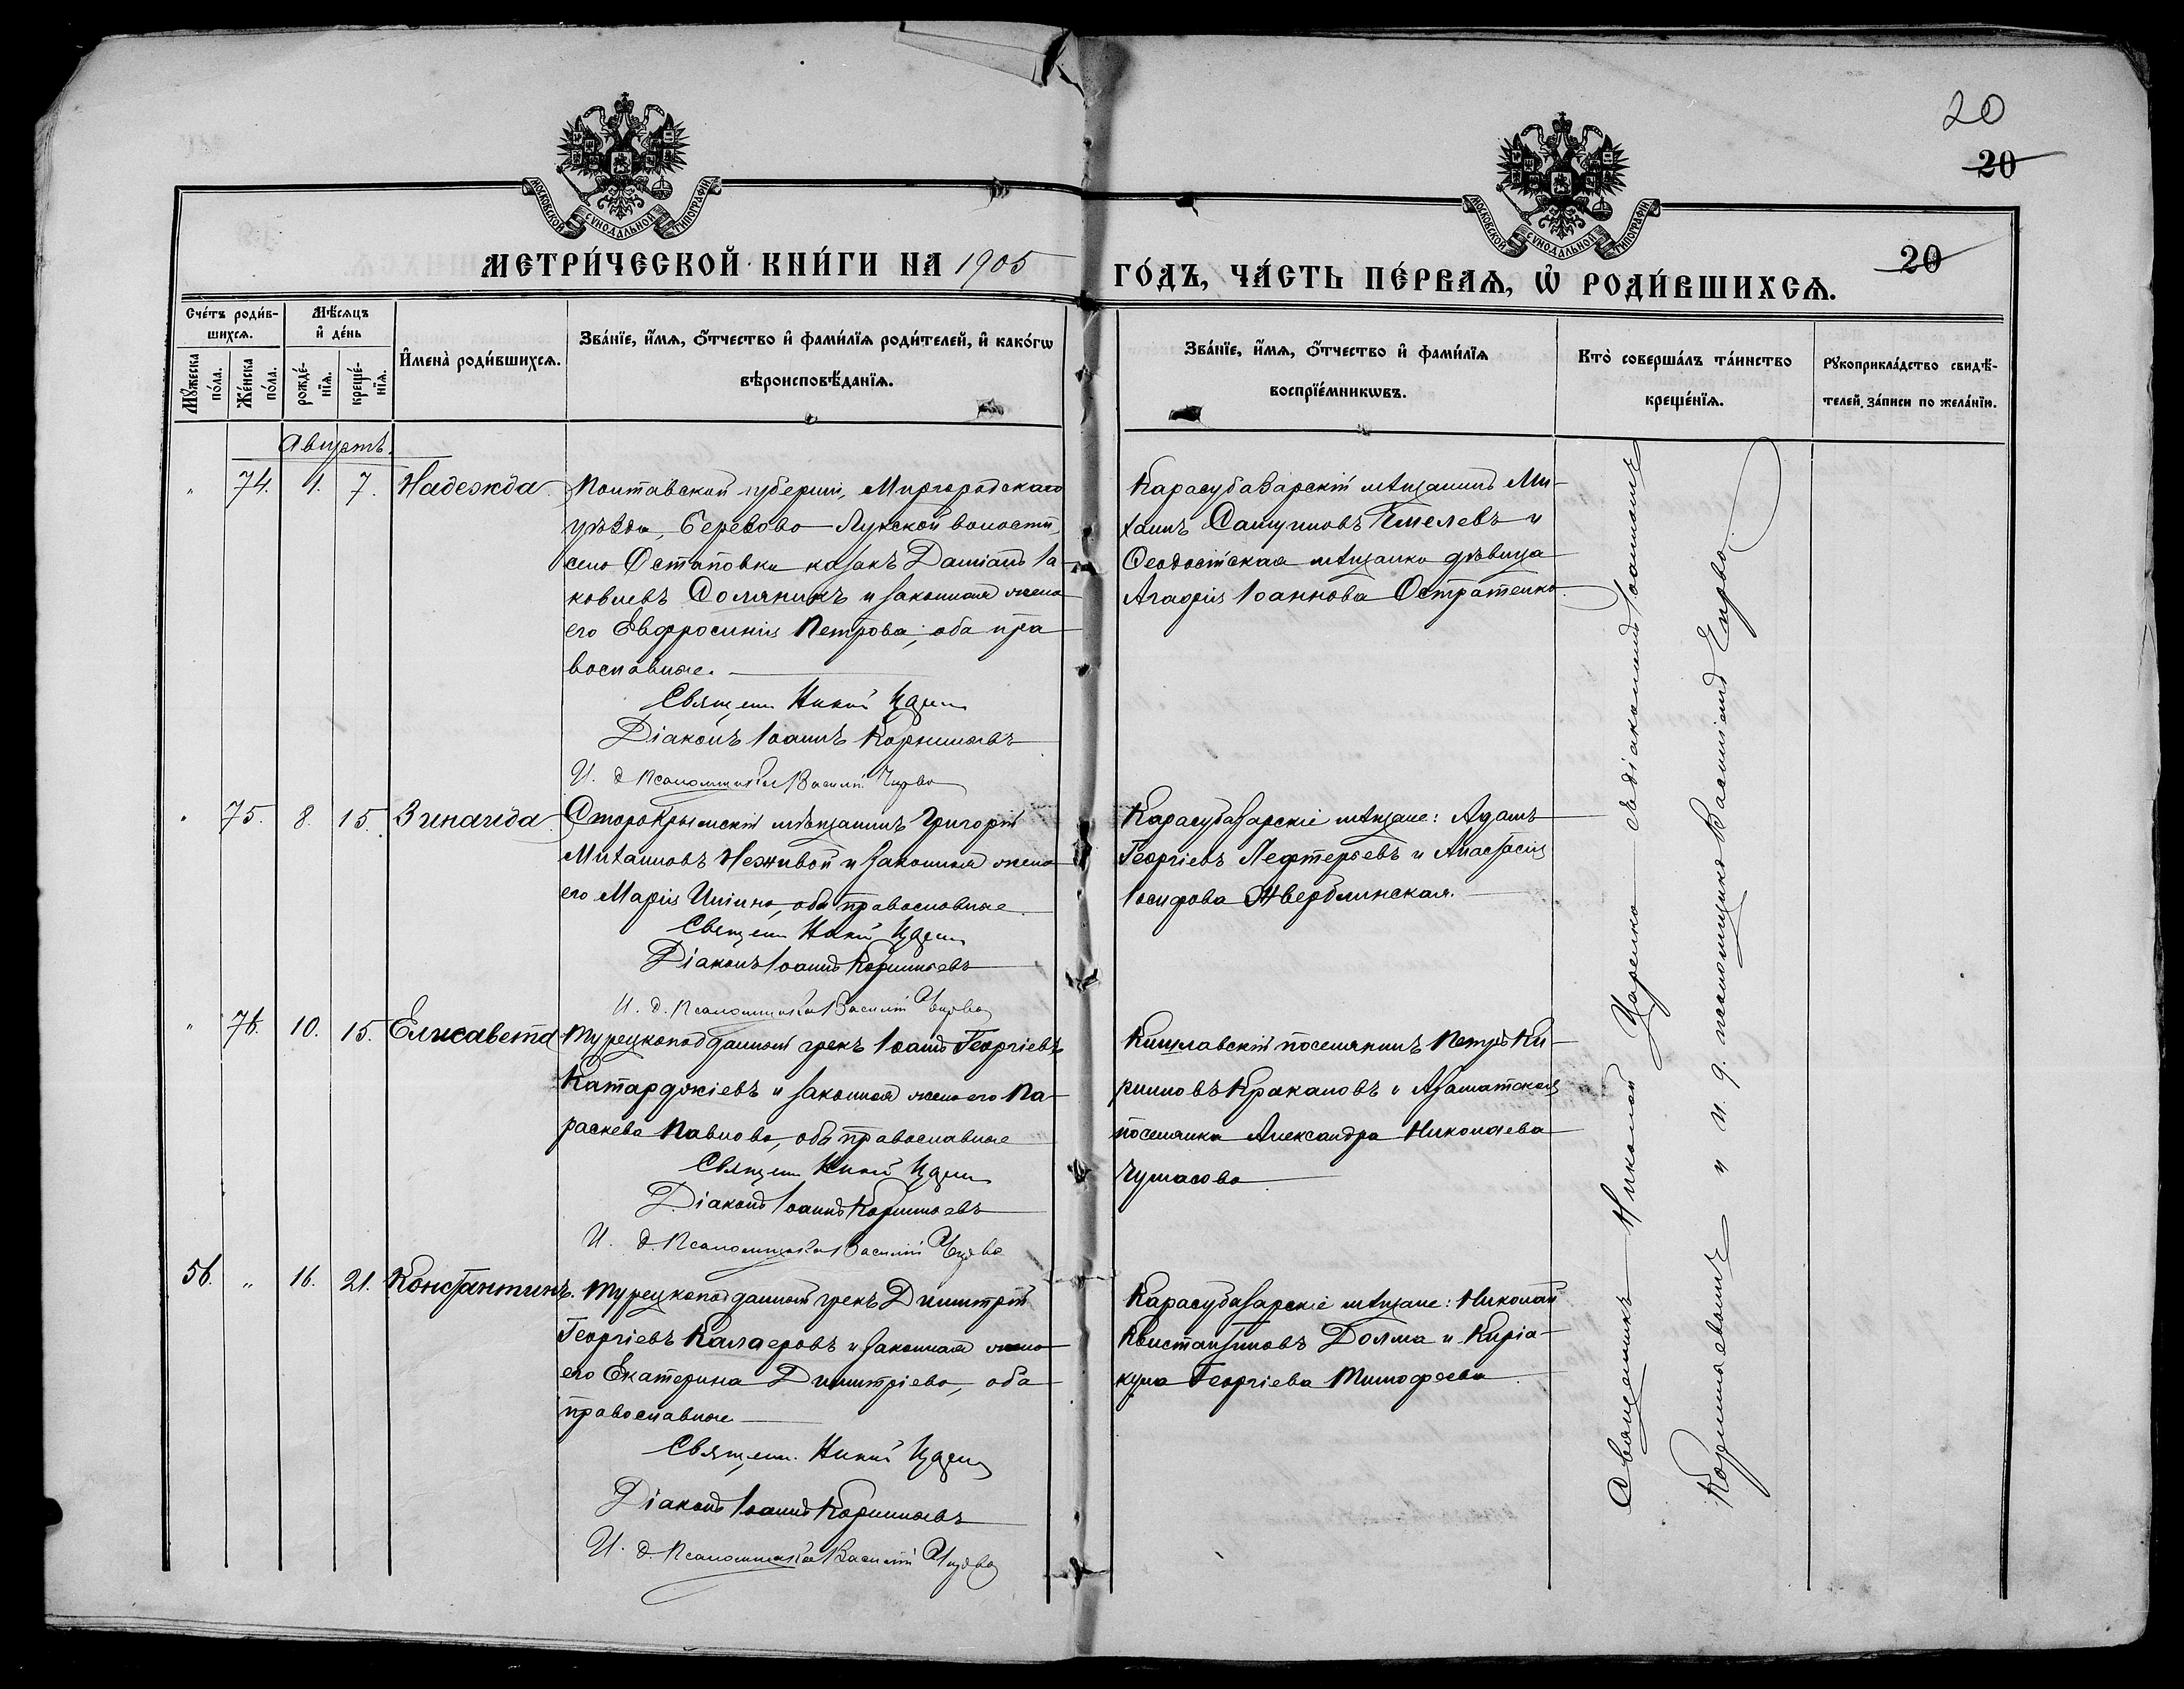 20
20
МОСКОВСКОЙ СѴНОДАЛЬНОЙ ТИПОГРАФІИ
МОСКОВСКОЙ СѴНОДАЛЬНОЙ ТИПОГРАФІИ
МЕТРИ́ЧЕСКОЙ КНИ́ГИ НА 1905
ГО́ДЪ, ЧА́СТЬ ПЕ́РВАѦ, Ѿ РОДИ́ВШИХСѦ.
20
Сче́тъ роди́в-
шихсѧ.
Мꙋ́жеска по́ла.
Же́нска по́ла.
Мѣ́сѧцъ и҆ де́нь
рожде́-нїѧ.
креще́-нїѧ.
И҆мена̀ роди́вшихсѧ.
Зва́нїе, и҆́мѧ, ѻ҆́тчество и҆ фами́лїѧ роди́телей, и҆ како́гѡ
вѣроисповѣ́данїѧ.
Зва́нїе, и҆́мѧ, ѻ҆́тчество и҆ фами́лїѧ
воспрїе́мникѡвъ.
Кто̀ соверша́лъ та́инство
креще́нїѧ.
Рꙋкоприкла́дство свидѣ́-
телей за́писи по жела́нїю.
Августъ.
" 74. 1. 7. Надежда
Полтавской губерніи, Миргородскаго
уѣзда, Березово-Лукской волости,
села Остаповки казакъ Даміанъ Іа-
ковлевъ Соляникъ и законная жена
его Евфросинія Петрова; оба пра-
вославные.
Священ. Никол. Царен
Діаконъ Іоаннъ Корнильевъ
И. д. псаломщика Василій
Карасубазарскій мѣщанинъ Ми-
хаилъ Самуиловъ и
Ѳеодосійская мѣщанка дѣвица
Агафія Іоаннова Остратенко.
" 75. 8. 15. Зинаида
Старокрымскій мѣщанинъ Григорій
Михаиловъ Неживой и законная жена
его Марія Иліина, оба православные.
Священ. Никол. Царен
Діаконъ Іоаннъ Корнильевъ
И. д. псаломщика Василій
Карасубазарскіе мѣщане: Адамъ
Георгіевъ Лефтерьевъ и Анастасія
Іосифова Жверблинская.
" 76. 10. 15. Елисавета
Турецкоподданный грекъ Іоаннъ Георгіевъ
Катарджіевъ и законная жена его Па-
раскева Павлова, оба православные
Священ. Никол. Царен
Діаконъ Іоаннъ Корнильевъ
И. д. псаломщика Василій
Кишлавскій поселянинъ Петръ Ки-
рилловъ Кракаловъ и Азаматская
поселянка Александра Николаева
Чумасова
56. " 16. 21. Константинъ.
Турецкоподданный грекъ Димитрій
Георгіевъ Калаеровъ и законная жена
его Екатерина Димитріева, оба
православные
Священ. Никол. Царен
Діаконъ Іоаннъ Корнильевъ
И. д. псаломщика Василій
Карасубазарскіе мѣщане: Николай
Константиновъ Долма и Киріа-
кула Георгіева Тимофеева.
Священникъ Николай Царенко съ діакономъ Іоанномъ
Корнильевымъ и и. д. псаломщика Василіемъ